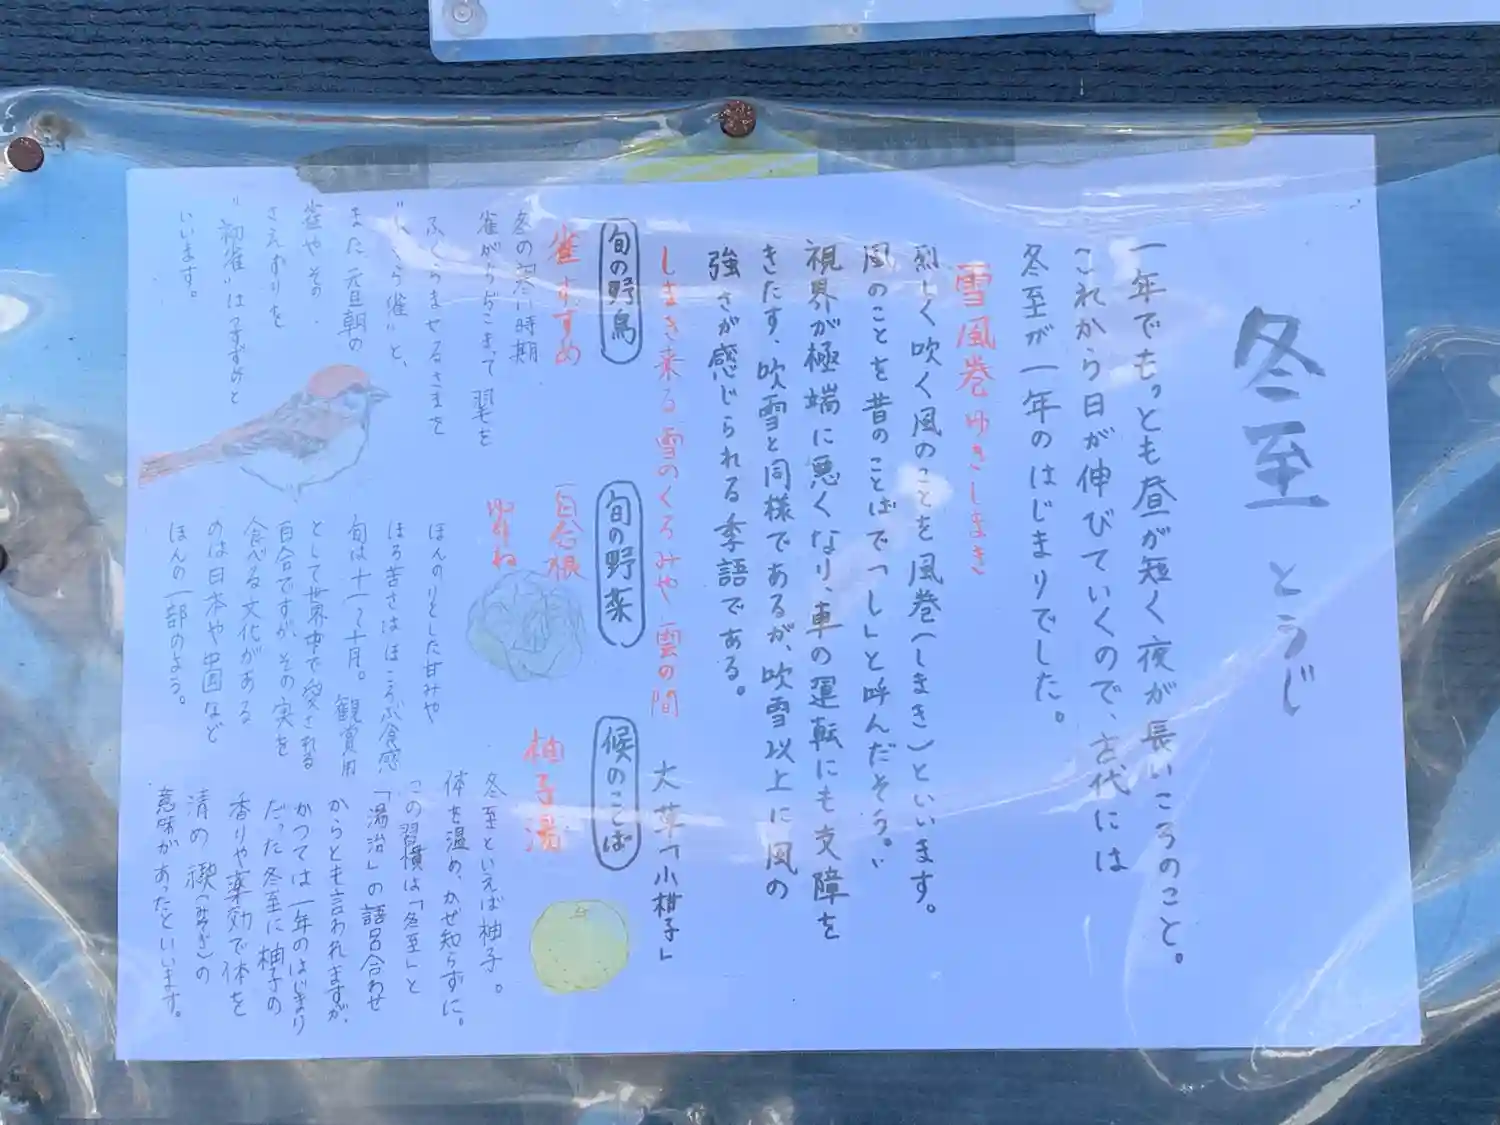 冬至 とうじ
一年でもっとも昼が短く夜が長いころのこと。
これから日が伸びていくので、古代には
冬至が一年のはじまりでした。
雪風巻 ゆきしまき
烈しく吹く風のことを風巻(しまき)といいます。
風のことを昔のことばで「し」と呼んだそう。
視界が極端に悪くなり、車の運転にも支障を
きたす、吹雪と同様であるが、吹雪以上に風の
強さが感じられる季語である。
しまき来る雪のくろみや雲の間 大草「小柑子」
旬の野鳥
雀 すずめ
冬の寒い時期
雀がちぢこまって翼を
ふくらませるさまを
"ふくら雀"と、
また元旦朝の
雀やその
さえずりを
"初雀"はつすずめと
いいます。
旬の野菜
百合根
ゆりね
ほんのりとした甘みや
ほろ苦さはほころぶ食感
旬は十一〜十月。観賞用
として世界中で愛される
百合ですが、その実を
食べる文化がある
のは日本や中国など
ほんの一部のよう。
候のことば
柚子湯
冬至といえば柚子。
体を温め、かぜ知らずに。
この習慣は「冬至」と
「湯治」の語呂合わせ
からとも言われますが、
かつては一年のはじまり
だった冬至に柚子の
香りや薬効で体を
清め 禊(みそぎ)の
意味があったといいます。